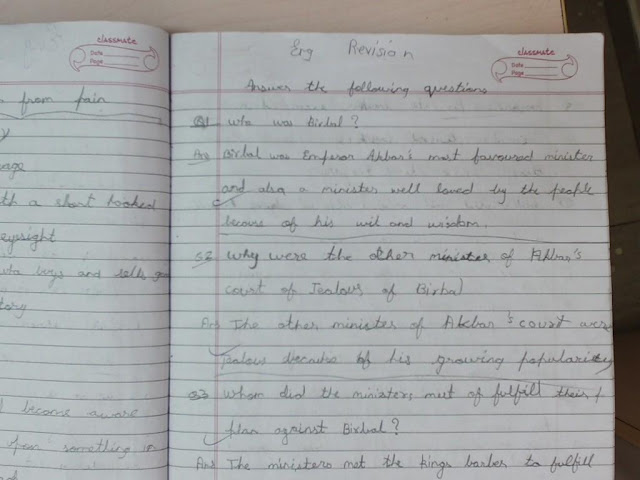 classmate
Date
Page
from pain
th a short hooked
eyesight
buys and sells
tory
become aware
from something
classmate
Date
Page
Eng Revision
Answer the following questions
Q1 who was Birbal?
Ans Birbal was Emperor Akbar's most favoured minister
and also a minister well loved by the people
because of his wit and wisdom.
Q2 Why were the other minister of Akbar's
court of Jealous of Birbal
Ans The other minister of Akbar's court were
jealous because of his growing popularity
Q3 Whom did the ministers meet of fulfill their
plan against Birbal?
Ans The ministers met the kings barber to fulfill